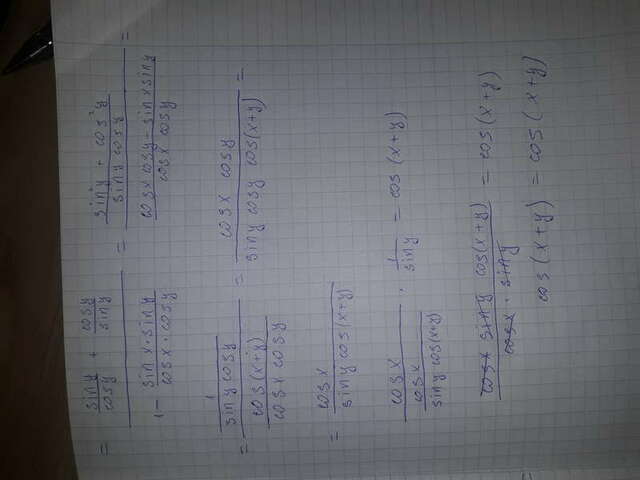 = (sin y / cos y + cos y / sin y) / (1 - (sin x · sin y) / (cos x · cos y)) = ((sin²y + cos²y) / (sin y cos y)) / ((cos x cos y - sin x sin y) / (cos x cos y)) =
= (1 / (sin y cos y)) / (cos(x+y) / (cos x cos y)) = (cos x cos y) / (sin y cos y cos(x+y)) =
= cos x / (sin y cos(x+y))
cos x / (cos x / (sin y cos(x+y))) · 1 / sin y = cos(x+y)
(cos x sin y cos(x+y)) / (cos x · sin y) = cos(x+y)
cos(x+y) = cos(x+y)